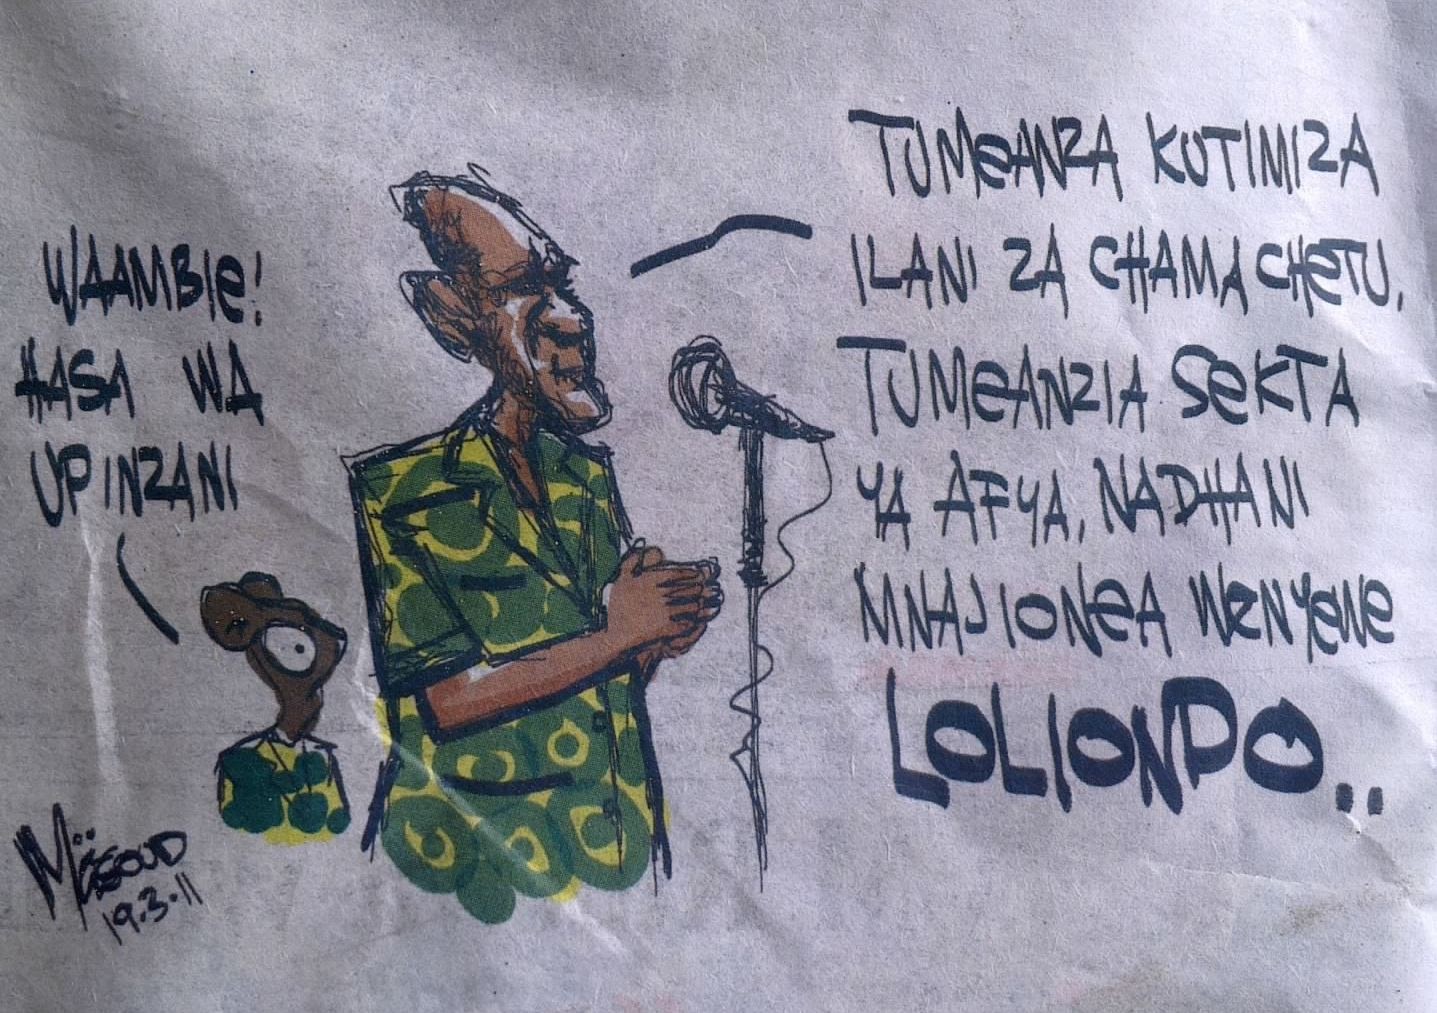 WAAMBIE!
HASA WA
UPINZANI
TUMEANZA KUTIMIZA
ILANI ZA CHAMA CHETU.
TUMEANZIA SEKTA
YA AFYA, NADHANI
MNAJIONEA WENYEWE
LOLIONDO..
MASOUD
19.3.11